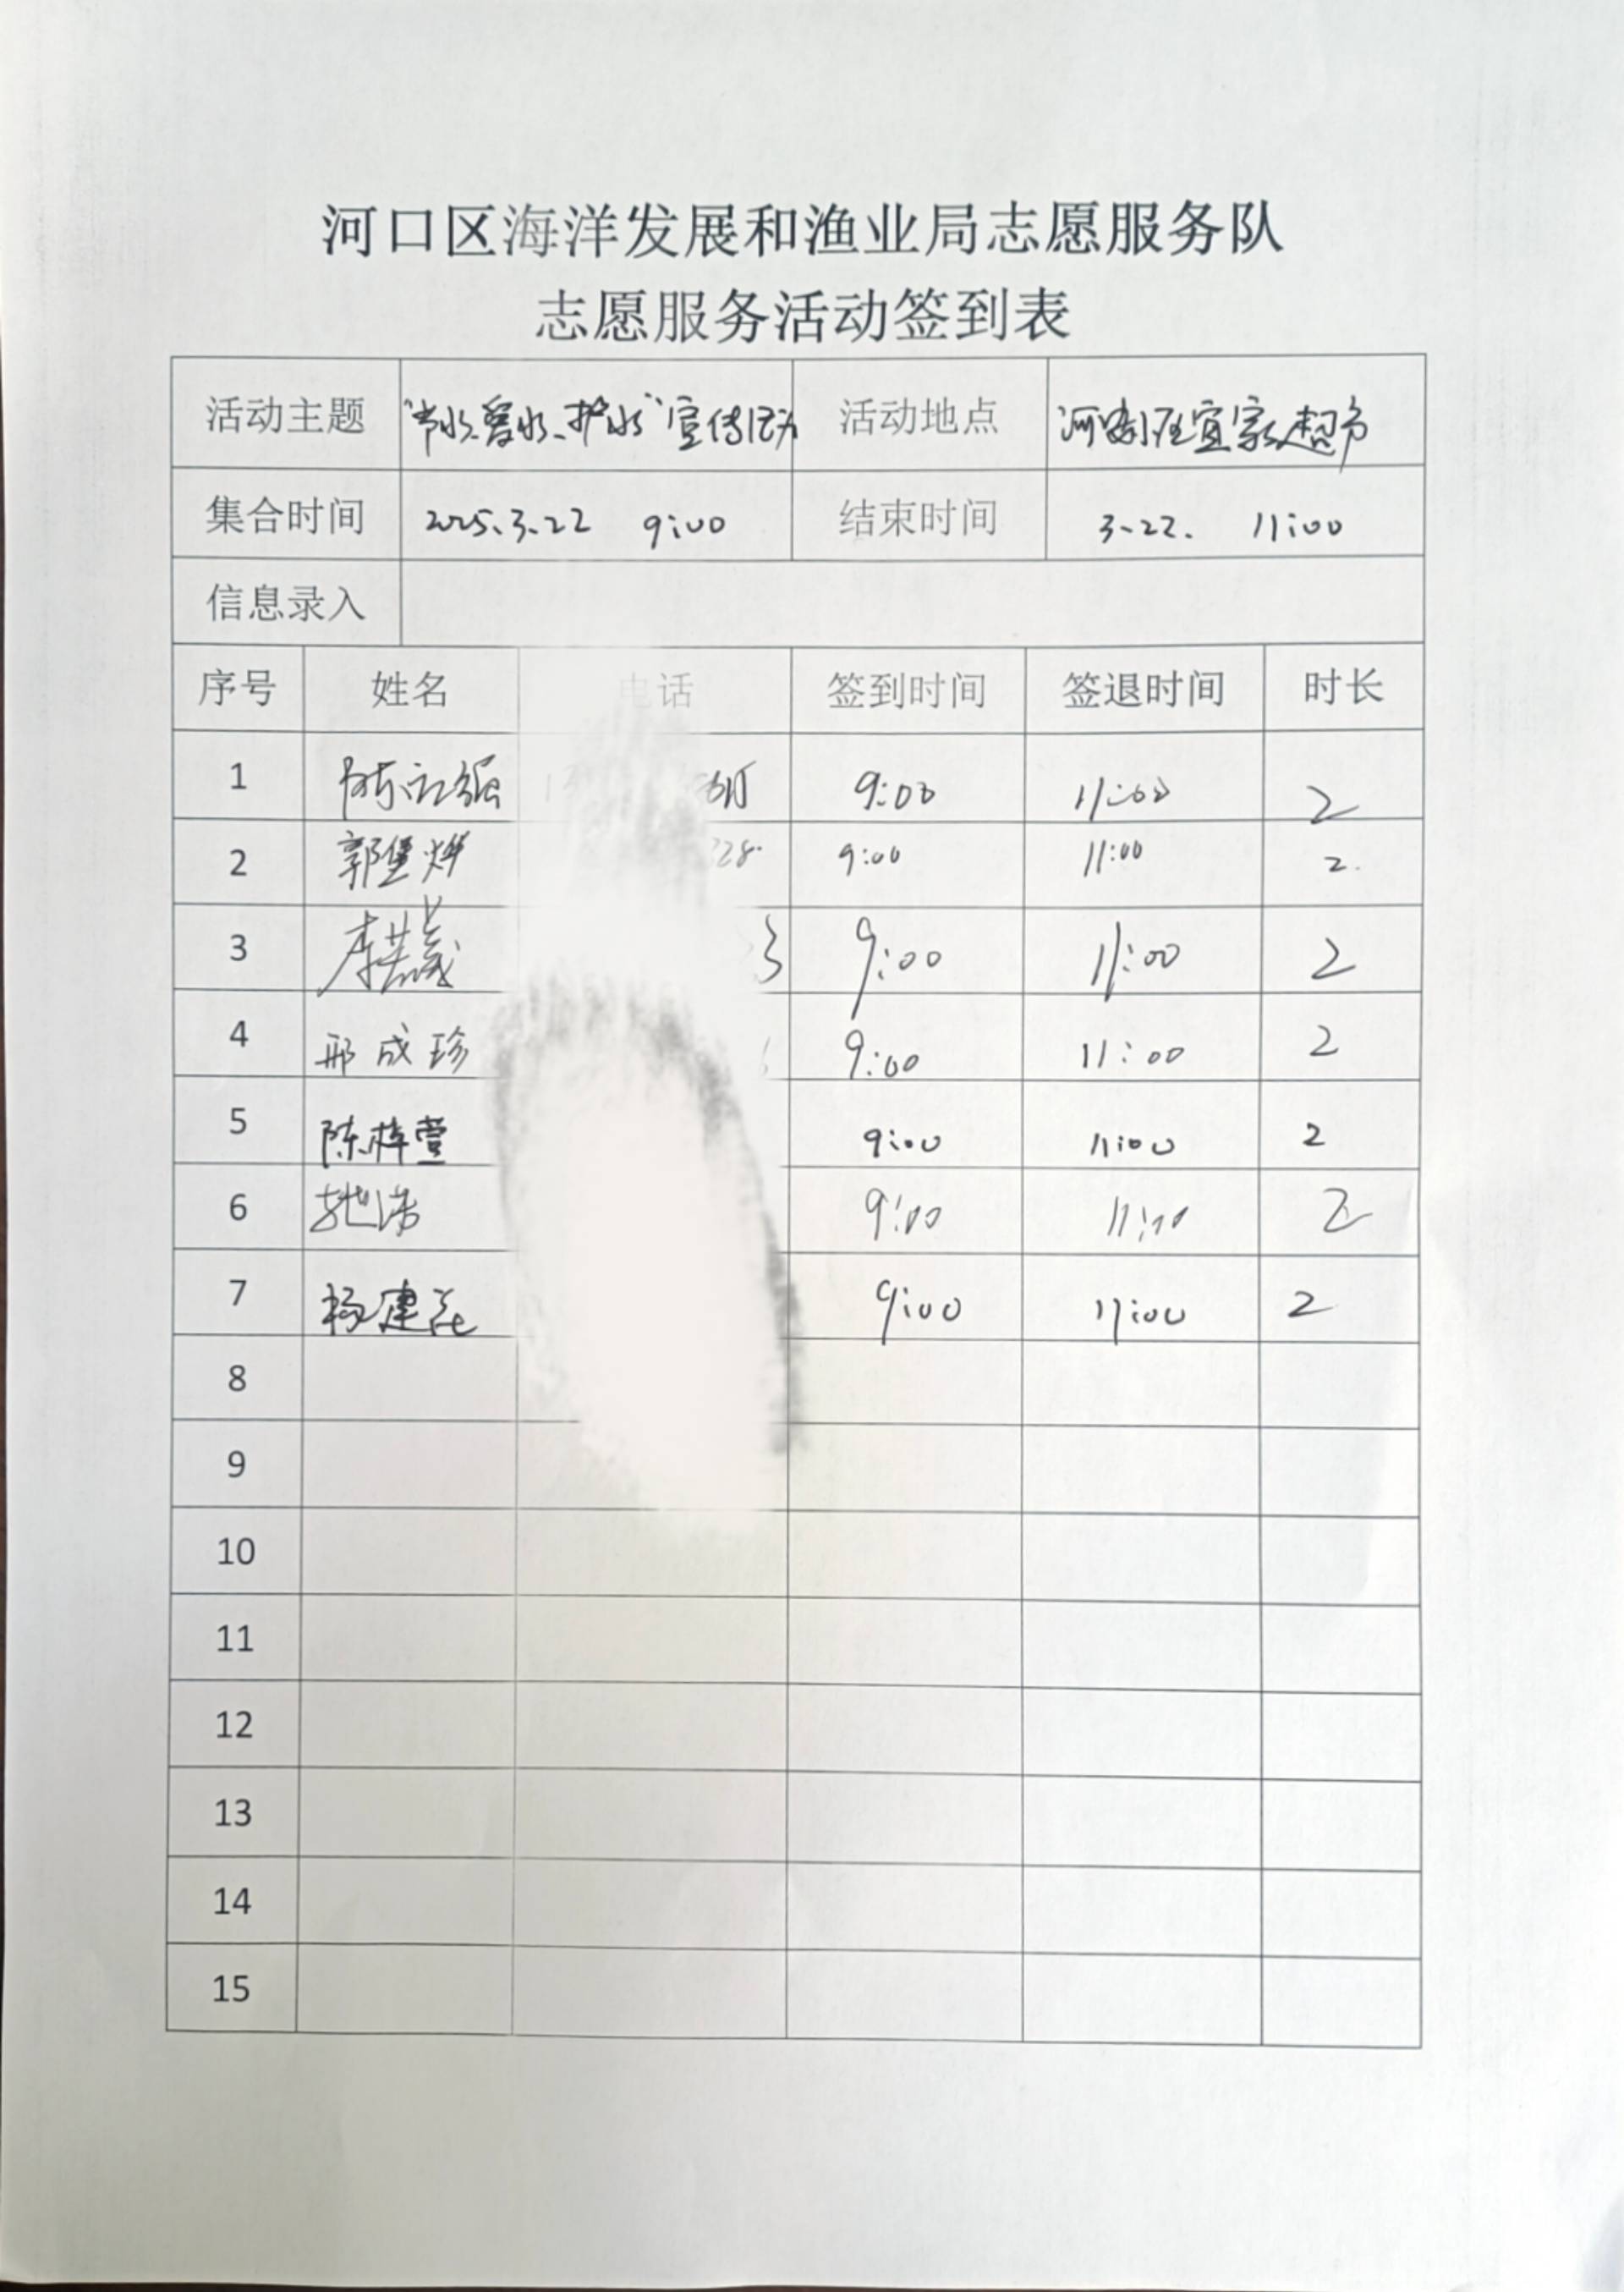 河口区海洋发展和渔业局志愿服务队
志愿服务活动签到表
活动主题 "节水、爱水、护水"宣传活动 活动地点 宜家超市
集合时间 2025.3.22 9:00 结束时间 3.22. 11:00
信息录入
序号 姓名 电话 签到时间 签退时间 时长
1 陈 强 9:00 11:00 2
2 郭 烨 9:00 11:00 2.
3 李 9:00 11:00 2
4 邢成珍 9:00 11:00 2
5 陈梓萱 9:00 11:00 2
6 9:00 11:00 2
7 杨建花 9:00 11:00 2
8
9
10
11
12
13
14
15